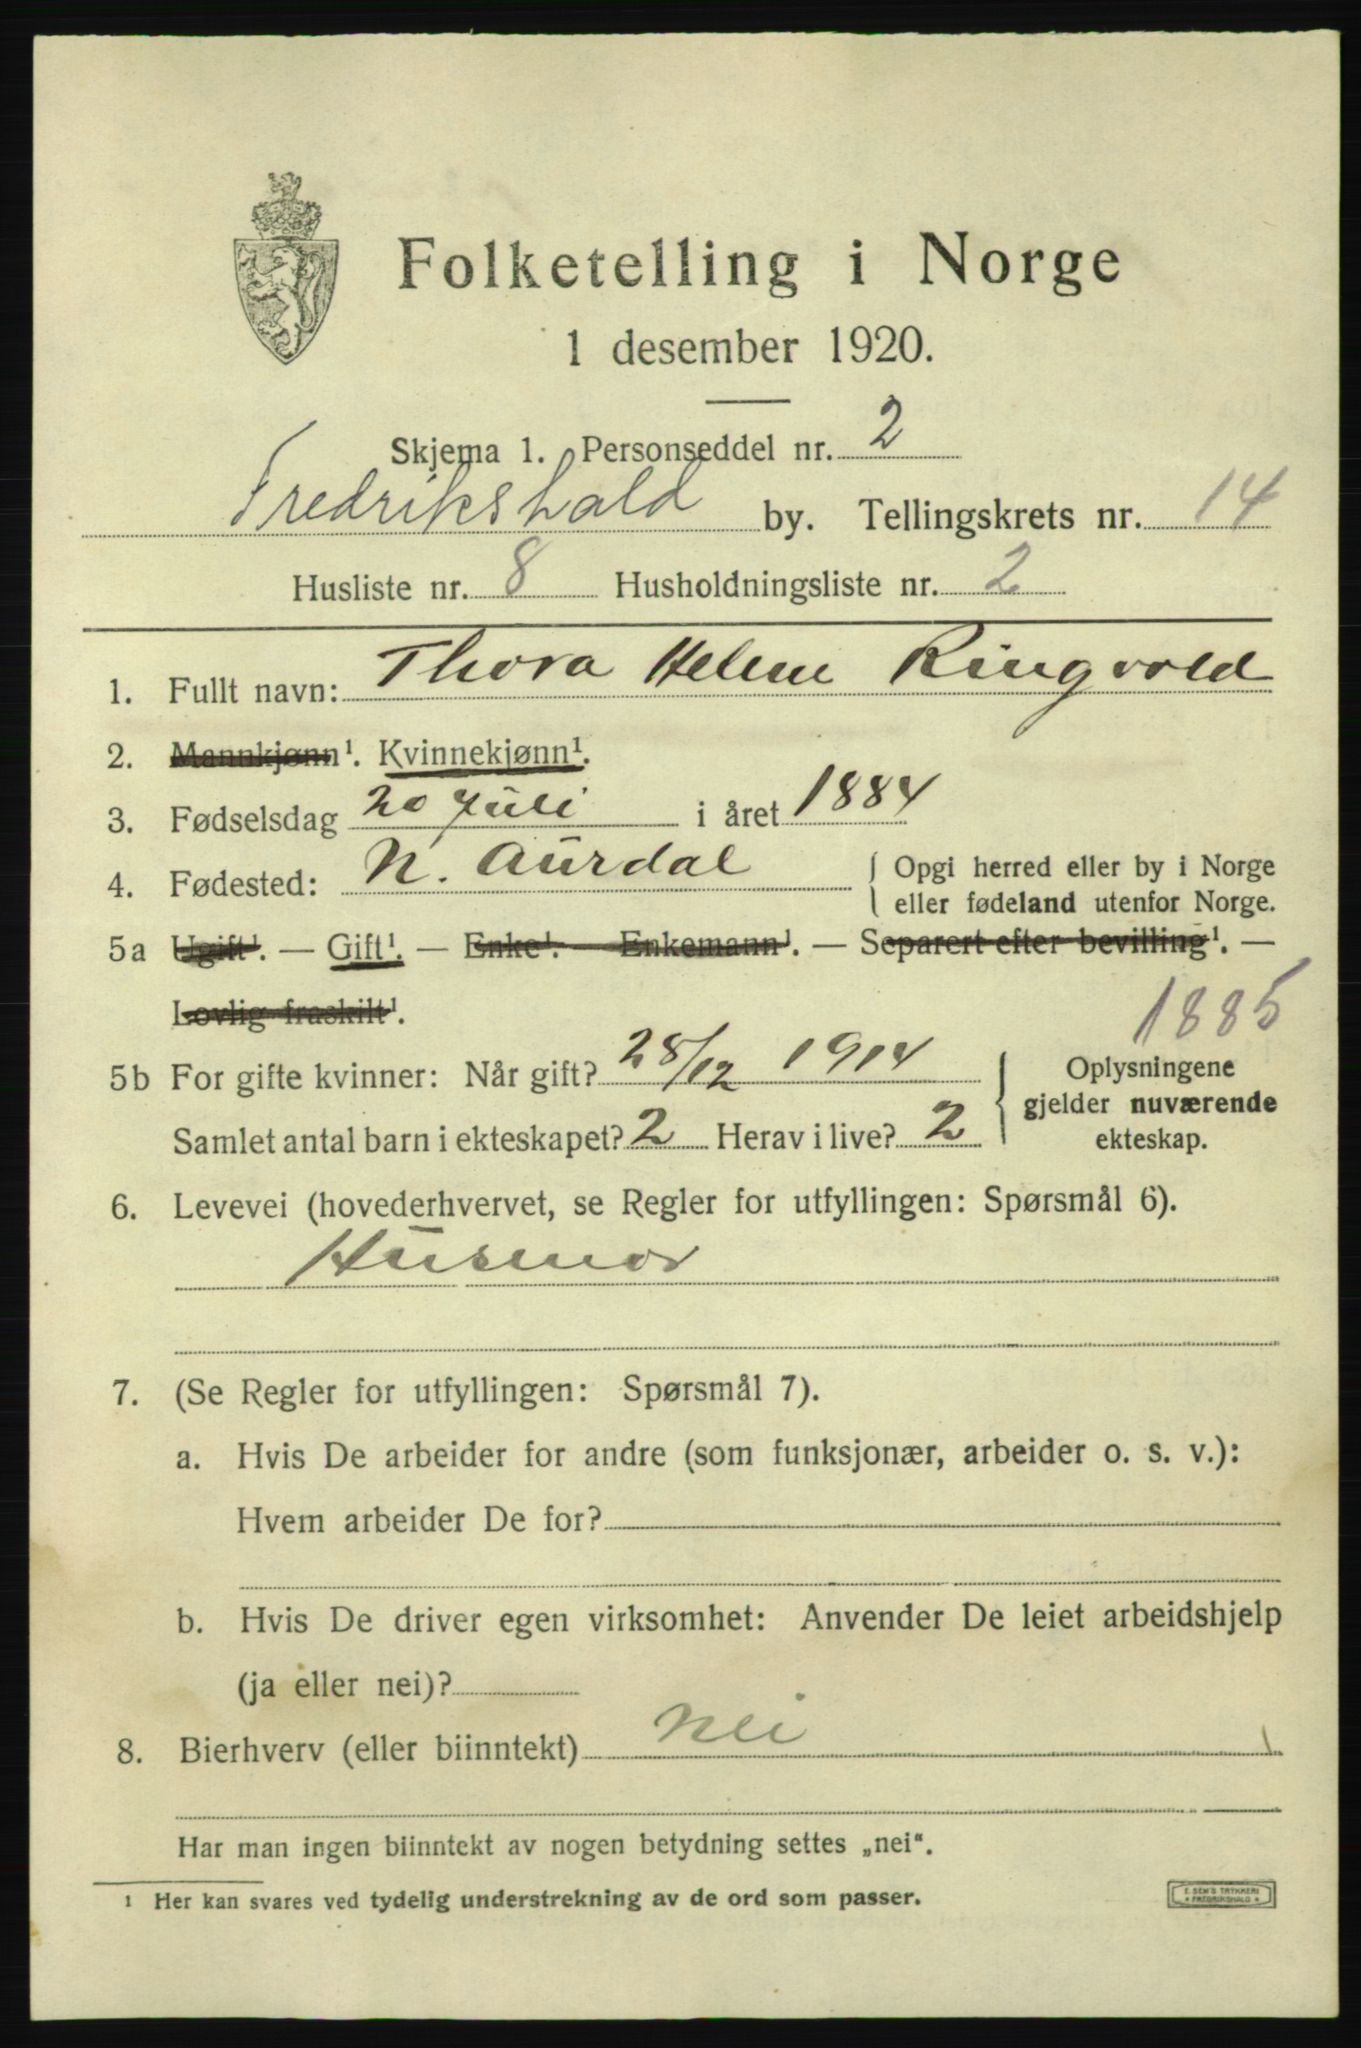 Folketelling i Norge
1 desember 1920.
Skjema 1. Personseddel nr. 2
Fredrikshald by. Tellingskrets nr. 14
Husliste nr. 8 Husholdningsliste nr. 2
1. Fullt navn: Thora Helene Ringvold
2. Mannkjønn¹. Kvinnekjønn¹.
3. Fødselsdag 20 Juli i året 1884
4. Fødested: N. Aurdal { Opgi herred eller by i Norge
eller fødeland utenfor Norge.
5a Ugift¹. — Gift¹. — Enke¹. — Enkemann¹. — Separert efter bevilling¹. —
Lovlig fraskilt¹.
1885
5b For gifte kvinner: Når gift? 28/12 1914
Samlet antal barn i ekteskapet? 2 Herav i live? 2
{ Oplysningene
gjelder nuværende
ekteskap.
6. Levevei (hovederhvervet, se Regler for utfyllingen: Spørsmål 6).
Husmor
7. (Se Regler for utfyllingen: Spørsmål 7).
a. Hvis De arbeider for andre (som funksjonær, arbeider o. s. v.):
Hvem arbeider De for?
b. Hvis De driver egen virksomhet: Anvender De leiet arbeidshjelp
(ja eller nei)?
8. Bierhverv (eller biinntekt) Nei
Har man ingen biinntekt av nogen betydning settes „nei“.
¹ Her kan svares ved tydelig understrekning av de ord som passer.
E. SEM'S TRYKKERI
* FREDRIKSHALD *